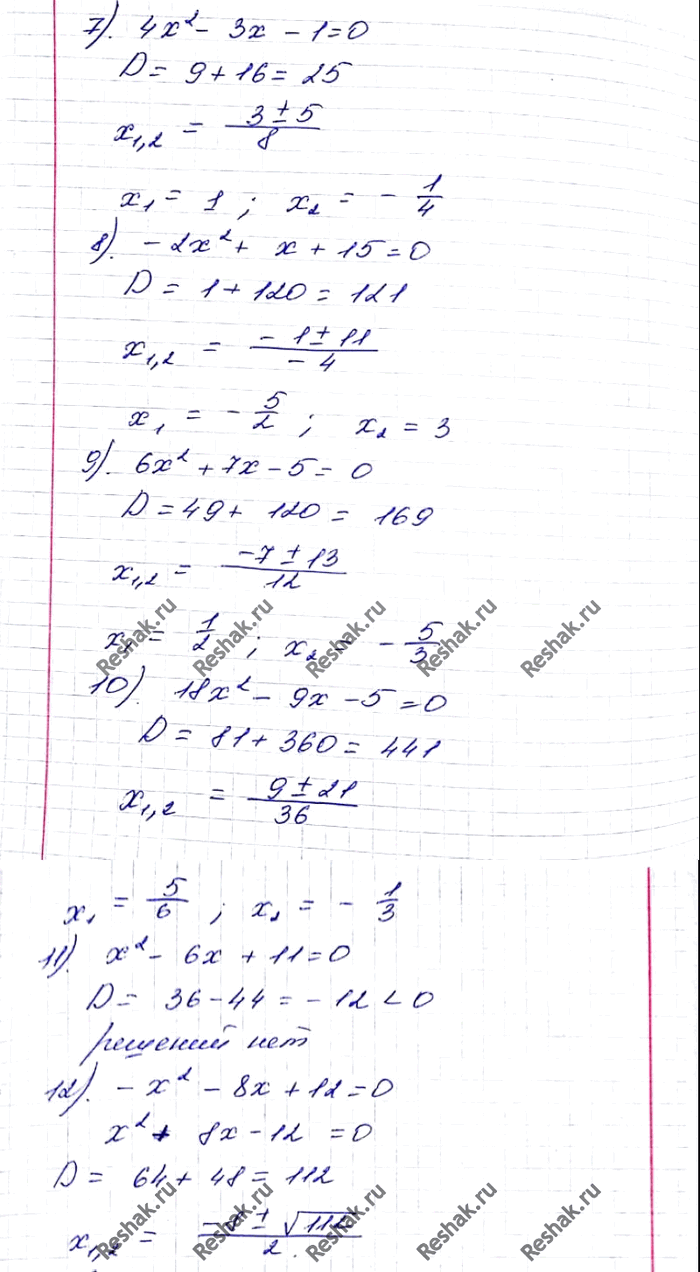 7). 4x² - 3x - 1 = 0
D = 9 + 16 = 25
x₁,₂ = (3 ± 5)/8
x₁ = 1 ; x₂ = - 1/4
8). - 2x² + x + 15 = 0
D = 1 + 120 = 121
x₁,₂ = (- 1 ± 11)/(- 4)
x₁ = - 5/2 ; x₂ = 3
9). 6x² + 7x - 5 = 0
D = 49 + 120 = 169
x₁,₂ = (-7 ± 13)/12
x₁ = 1/2 ; x₂ = - 5/3
Reshak.ru Reshak.ru Reshak.ru Reshak.ru Reshak.ru
10). 18x² - 9x - 5 = 0
D = 81 + 360 = 441
x₁,₂ = (9 ± 21)/36
x₁ = 5/6 ; x₂ = - 1/3
11). x² - 6x + 11 = 0
D = 36 - 44 = - 12 < 0
решений нет
12). - x² - 8x + 12 = 0
x² + 8x - 12 = 0
D = 64 + 48 = 112
x₁,₂ = (-8 ± √112)/2
Reshak.ru Reshak.ru Reshak.ru Reshak.ru Reshak.ru